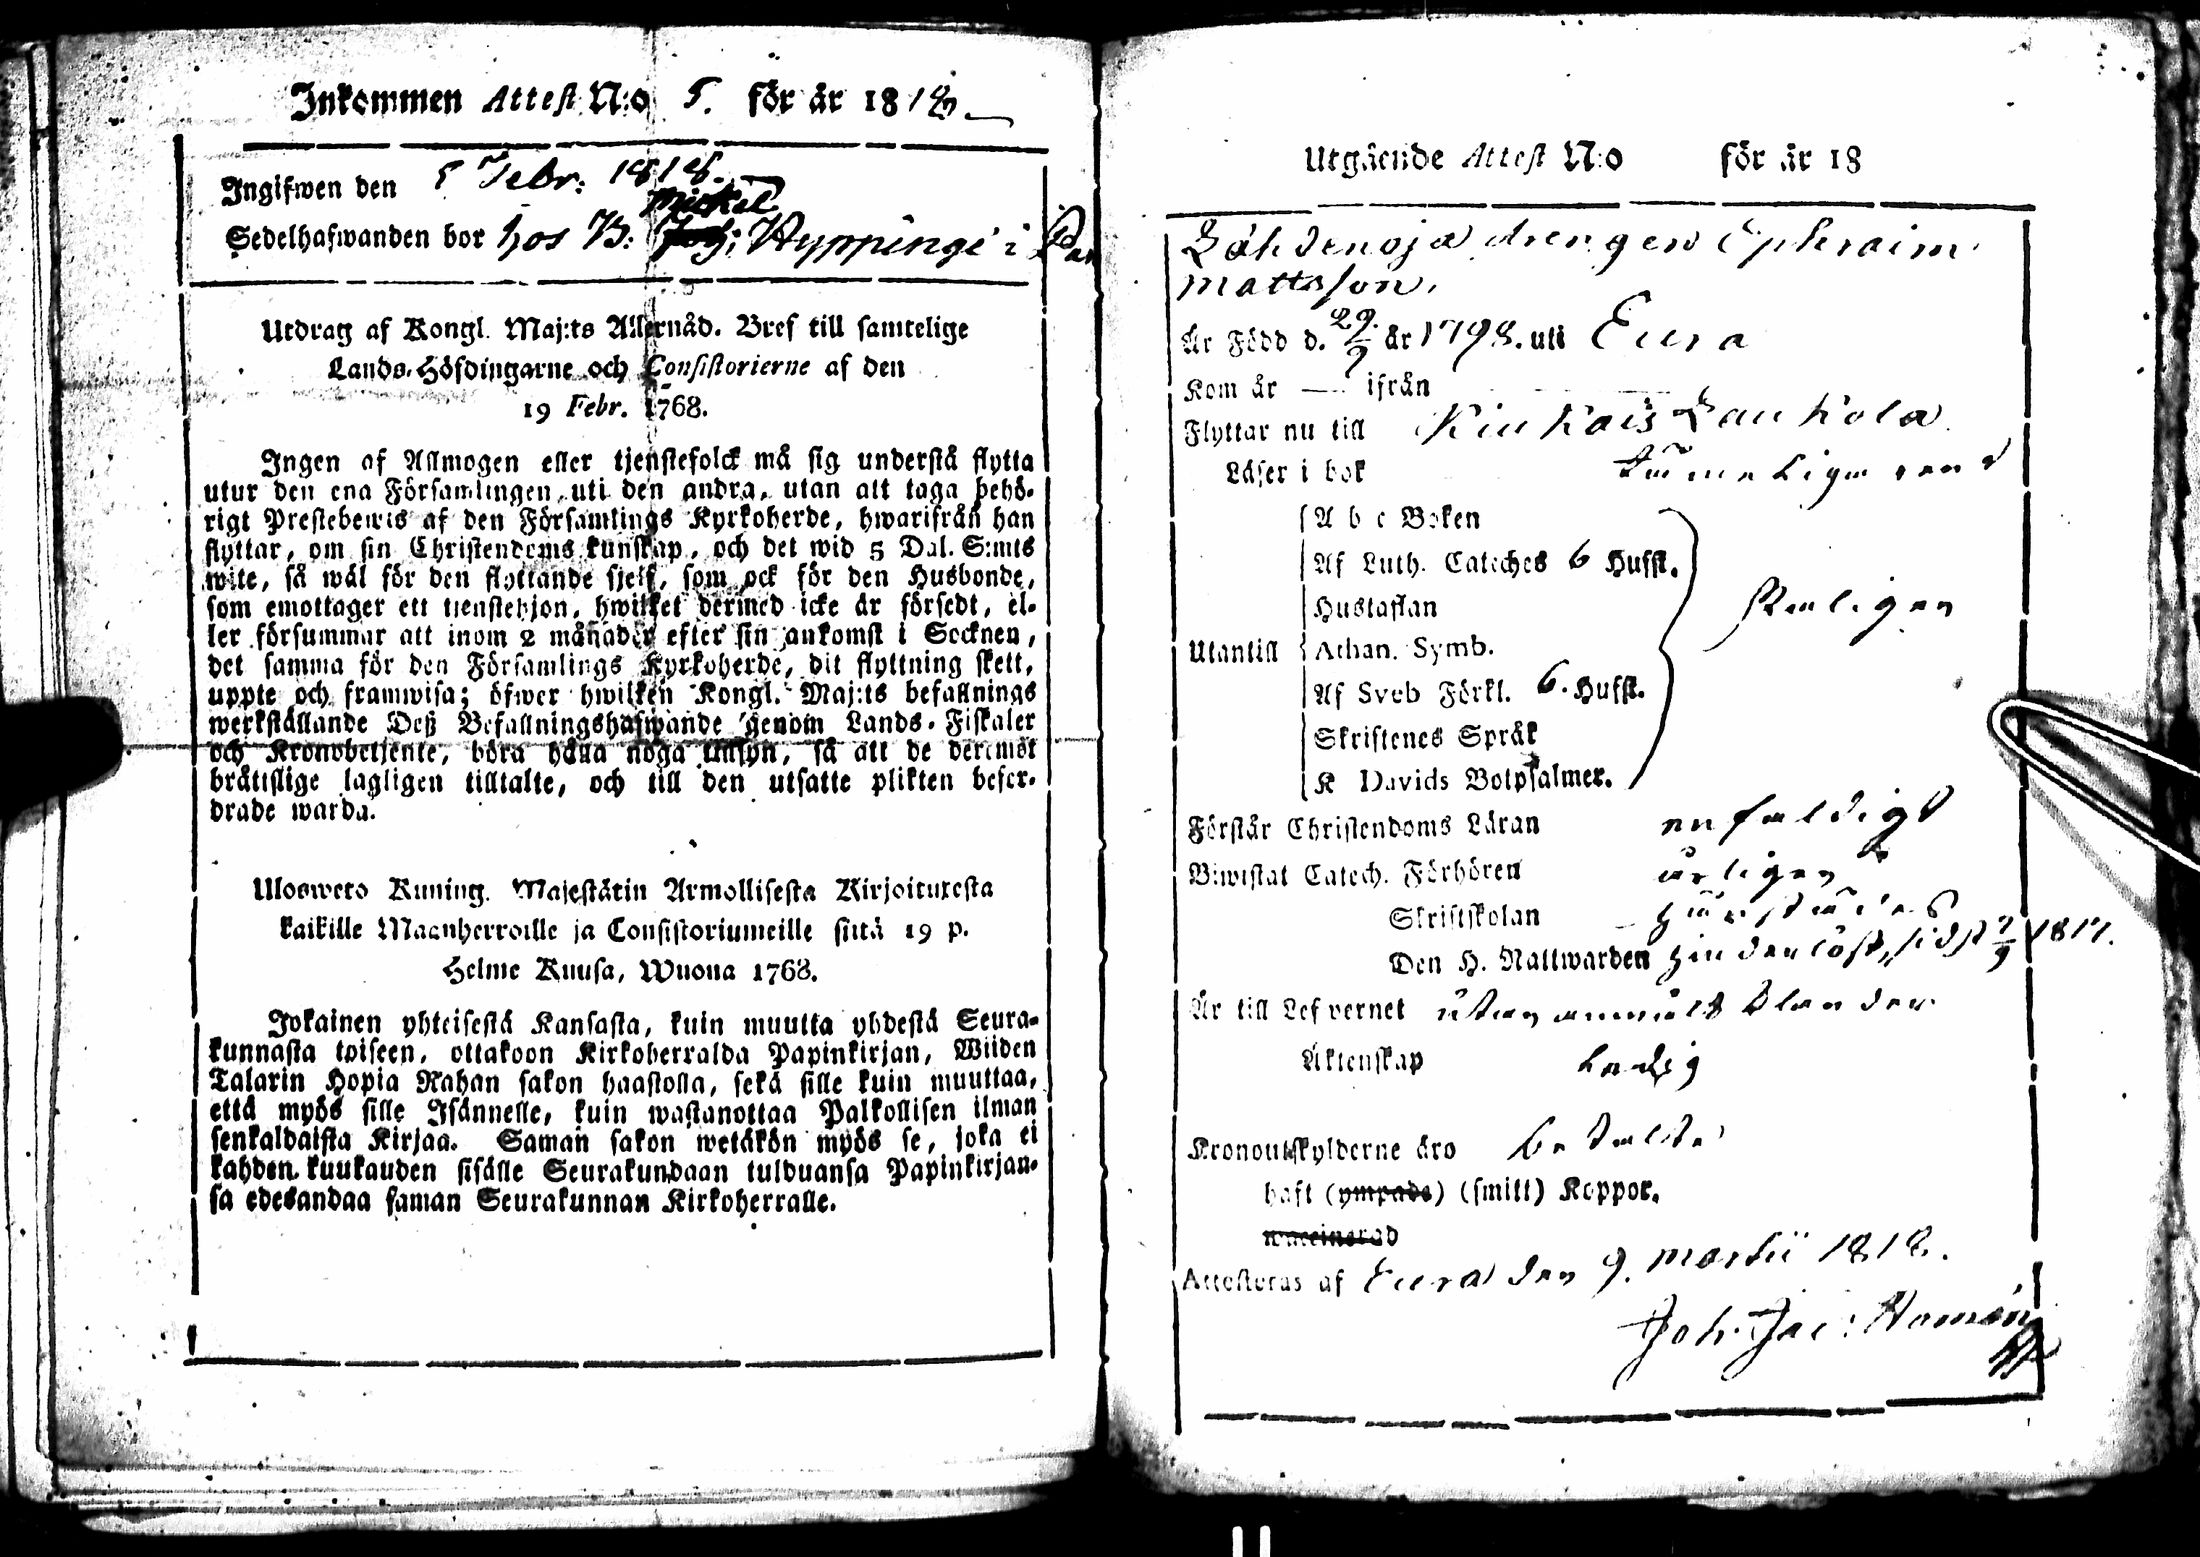 Inkommen Attest N:o 5. för år 1818
Ingifwen den 5 Febr: 1818.
Mickel
Sedelhafwanden bor hos B: Hyppingé i
Utdrag af Kongl. Maj:ts Allernåd. Bref till samtelige
Lands-Höfdingarne och Consistorierne af den
19 Febr. 1768.
Ingen af Allmogen eller tjenstefolck må sig understå flytta
utur den ena Församlingen uti den andra, utan att taga behö-
rigt Prestebewis af den Församlings Kyrkoherde, hwarifrån han
flyttar, om sin Christendoms kunskap, och det wid 5 Dal. S:mts
wite, så wäl för den flyttande sjelf, som ock för den Husbonde,
som emottager ett tienstehjon, hwilket dermed icke är försedt, el-
ler försummar att inom 2 månader efter sin ankomst i Socknen,
det samma för den Församlings Kyrkoherde, dit flyttning skett,
uppte och framwisa; öfwer hwilken Kongl. Maj:ts befallnings
werkställande Deß Befallningshafwande genom Lands-Fiskaler
och Kronobetjente, böra hålla noga tillsyn, så att de deremot
bråttslige lagligen tilltalte, och till den utsatte plikten befor-
drade warda.
Ulosweto Kuning. Majestätin Armollisesta Kirjoituxesta
kaikille Maanherroille ja Consistoriumeille siitä 19 p.
Helme Kuusa, Wuona 1768.
Jokainen yhteisestä Kansasta, kuin muutta yhdestä Seura-
kunnasta toiseen, ottakoon Kirkoherralda Papinkirjan, Wiiden
Talarin Hopia Rahan sakon haastolla, sekä sille kuin muuttaa,
että myös sille Isännelle, kuin wastanottaa Palkollisen ilman
senkaldaista Kirjaa. Saman sakon wetäkön myös se, joka ei
kahden kuukauden sisälle Seurakundaan tulduansa Papinkirjan-
sa edesandaa saman Seurakunnan Kirkoherralle.
Utgående Attest N:o för år 18
Lähdenoja drengen Ephraim
Mattsson.
Är Född d. 29/9 år 1798. uti Eura
Kom år — ifrån —
Flyttar nu till Kiukais Laukola
Läser i bok
Utantill
A b c Boken
Af Luth. Catechês 6 Hufst.
Hustaflan
Athan. Symb.
Af Sveb Förkl. 6. Hufst.
Skriftenes Språk
K Davids Botpsalmer.
Förstår Christendoms Läran enfaldigt
Biwistat Catech. Förhören årligen
Skriftskolan
Den H. Nattwarden hinderlöst, sidst 7/9 1817.
Är till Lefvernet utan anmält klander
Äktenskap Ledig
Kronoutskylderne äro betalte
haft (ympade) (smitt) Koppor.
waccinerad
Attesteras af Eura den 9. Martii 1818.
Joh. Jac: Homén